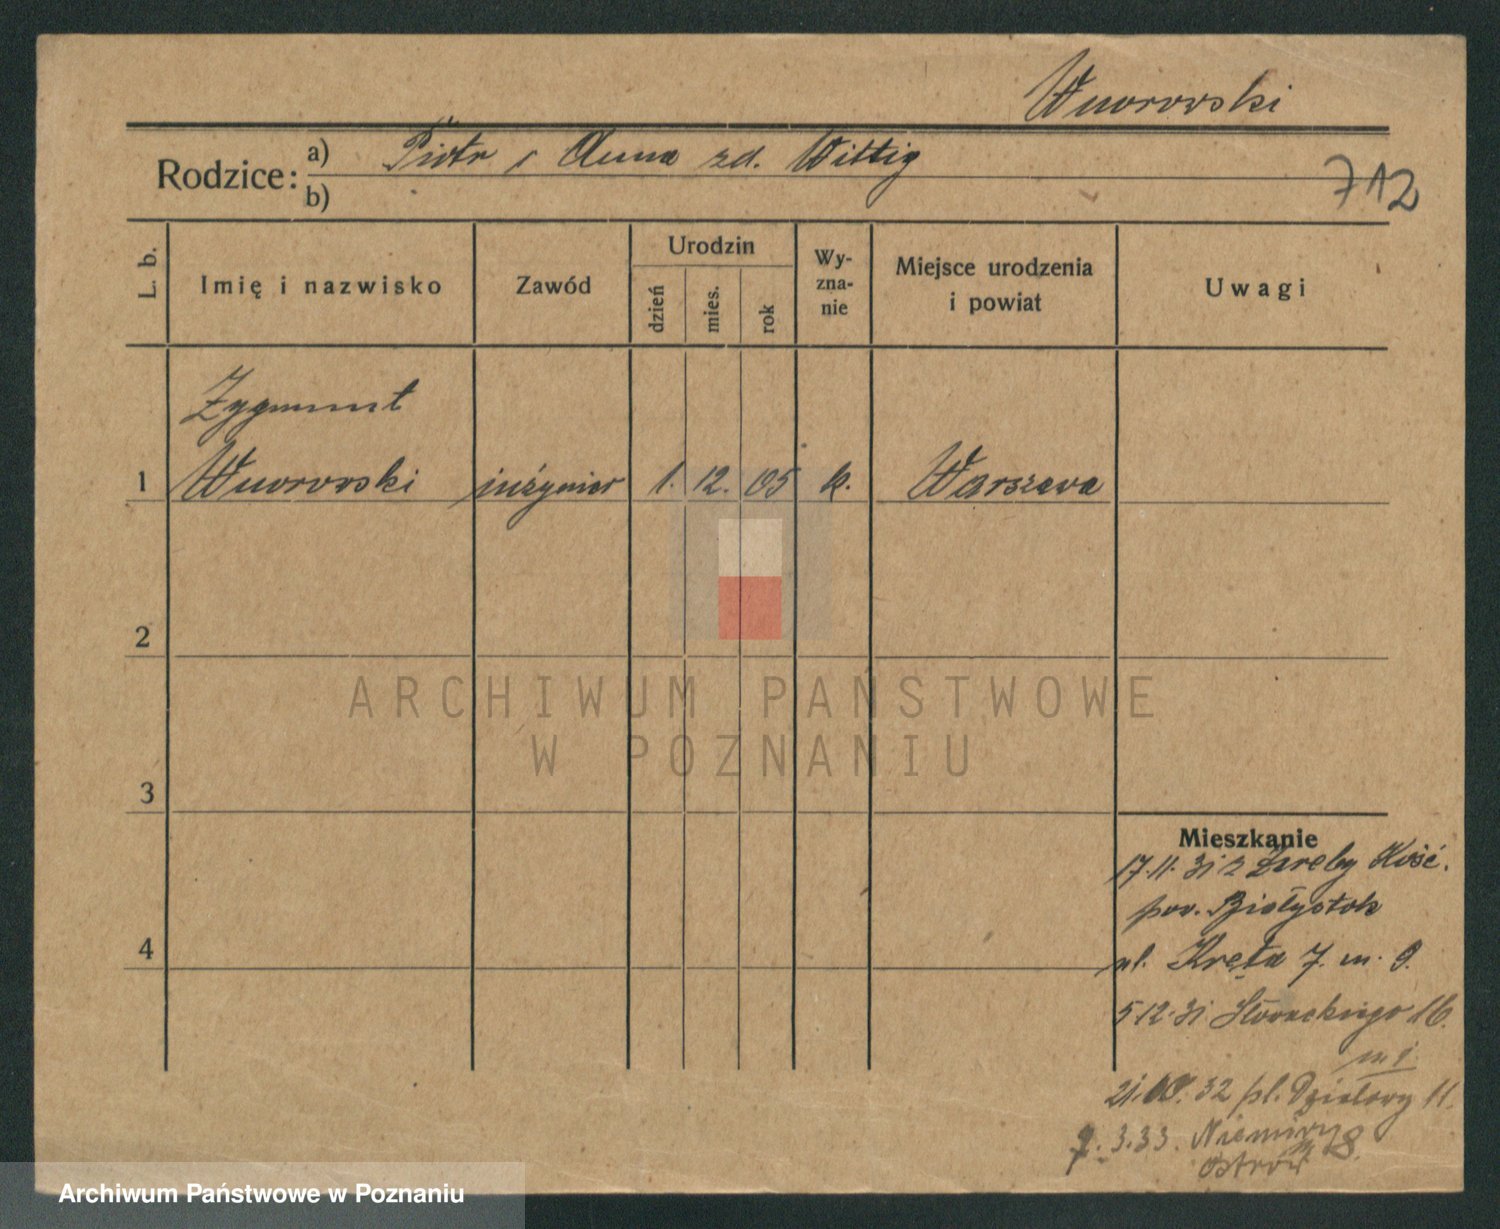 Wnorowski
Rodzice: a) Piotr i Anna zd. Wittig
b)
712
L. b.
Imię i nazwisko
Zawód
Urodzin
dzień
mies.
rok
Wy-
zna-
nie
Miejsce urodzenia
i powiat
Uwagi
Zygmunt
1 Wnorowski inżynier 1. 12. 05 k. Warszawa
2
ARCHIWUM PAŃSTWOWE
W POZNANIU
3
Mieszkanie
17.11.31 z Zaręby Kość.
pow. Białystok
4
ul. Kręta 7. m. 9.
5.12.31 Słowackiego 16.
m 1.
21. 32 pl. Działowy 11.
7. 3.33. 8.
Ostrów
Archiwum Państwowe w Poznaniu